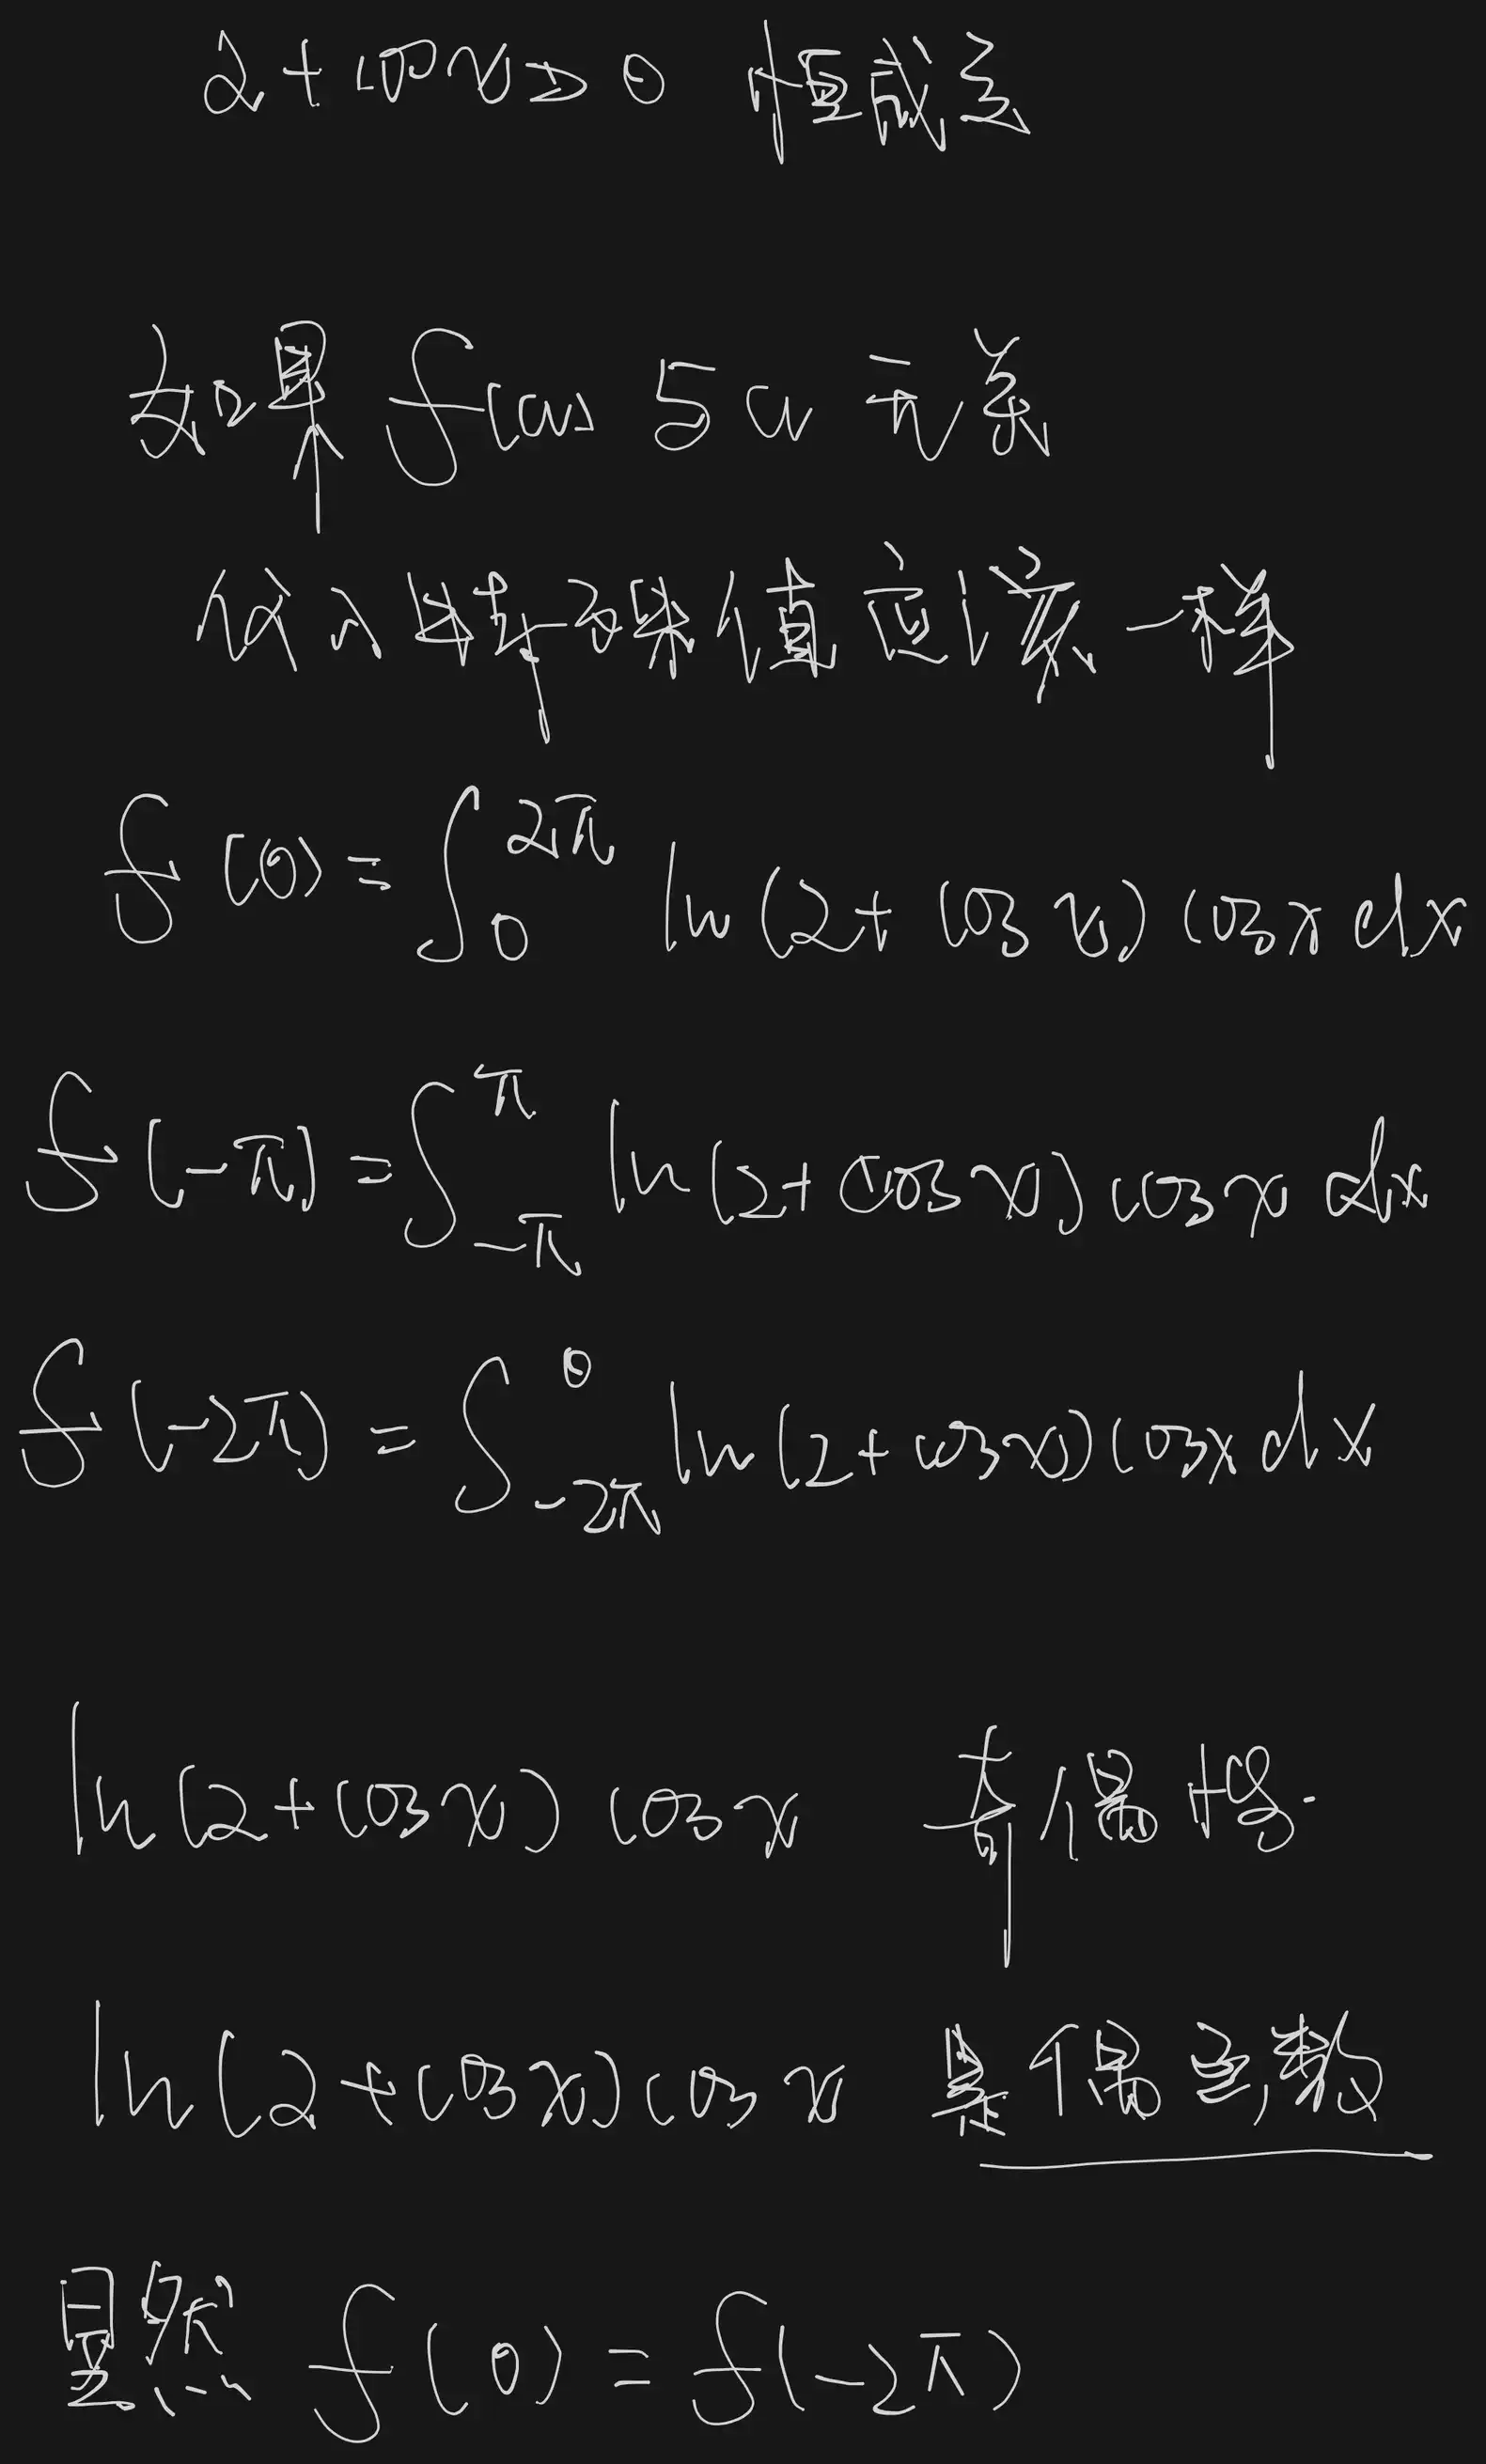 2 + cos x > 0 恒成立
如果 f(a) 与 a 无关
代入特殊值应该一样
f(0) = ∫_0^{2π} ln(2 + cos x) cos x dx
f(-π) = ∫_{-π}^{π} ln(2 + cos x) cos x dx
f(-2π) = ∫_{-2π}^{0} ln(2 + cos x) cos x dx
ln(2 + cos x) cos x 奇偶性
ln(2 + cos x) cos x 是偶函数
显然 f(0) = f(-2π)